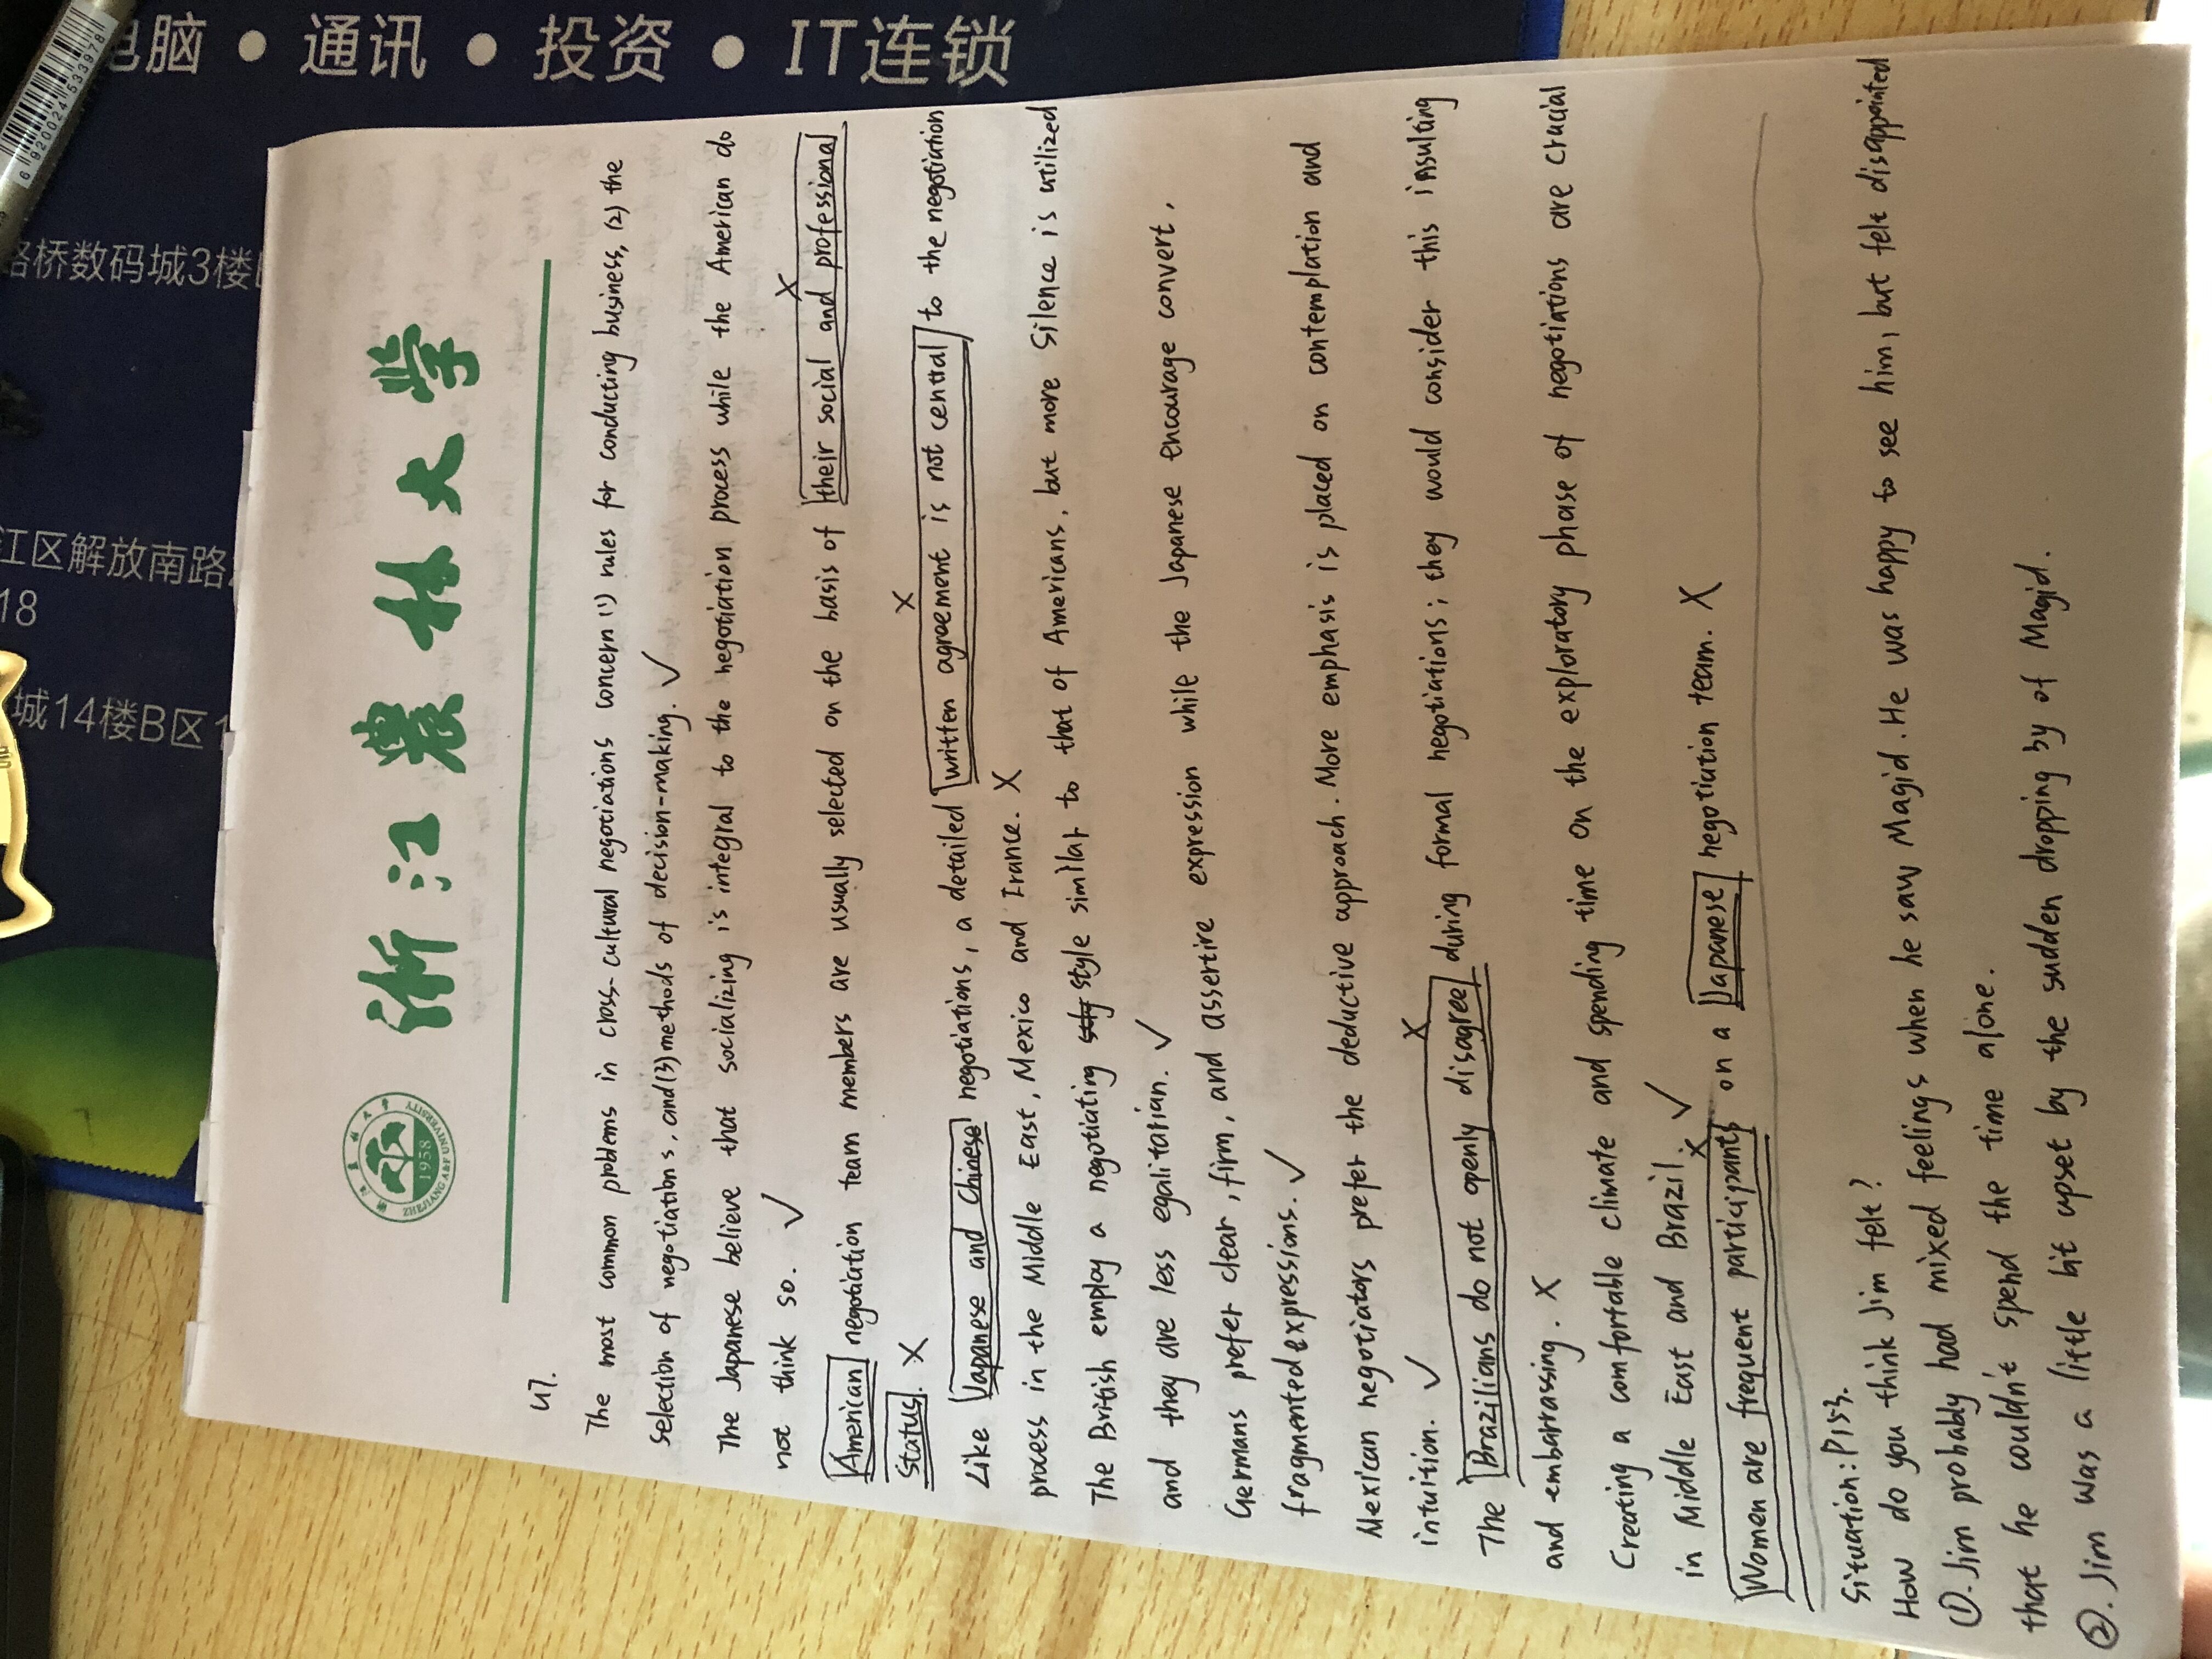 电脑 • 通讯 • 投资 • IT连锁
路桥数码城3楼
江区解放南路
18
城14楼B区1
6 920024 533978
浙江农林大学
ZHEJIANG A&F UNIVERSITY
1958
U7.
The most common problems in cross-cultural negotiations concern (1) rules for conducting business, (2) the
selection of negotiations, and (3) methods of decision-making. ✓
The Japanese believe that socializing is integral to the negotiation process while the American do
not think so. ✓
American negotiation team members are usually selected on the basis of their social and professional
status. X
Like Japanese and Chinese negotiations, a detailed written agreement is not central to the negotiation
process in the Middle East, Mexico and Irance. X
The British employ a negotiating style similar to that of Americans, but more silence is utilized
and they are less egalitarian. ✓
Germans prefer clear, firm, and assertire expression while the Japanese encourage convert,
fragmented expressions. ✓
Mexican negotiators prefer the deductive approach. More emphasis is placed on contemplation and
intuition. ✓
The Brazilians do not openly disagree during formal negotiations; they would consider this insulting
and embarrassing. X
Creating a comfortable climate and spending time on the exploratory phase of negotiations are crucial
in Middle East and Brazil. ✓
Women are frequent participants on a Japanese negotiation team. X
Situation: P153.
How do you think Jim felt?
①. Jim probably had mixed feelings when he saw Magid. He was happy to see him, but felt disappointed
that he couldn't spend the time alone.
②. Jim was a little bit upset by the sudden dropping by of Magid.